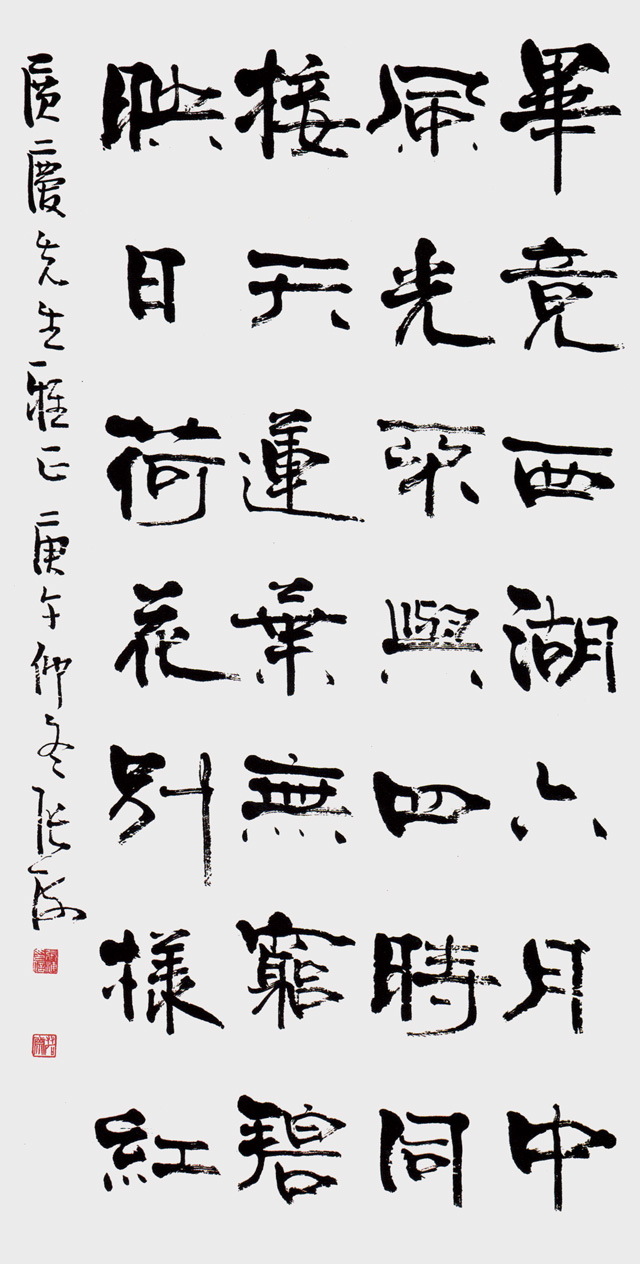 畢竟西湖六月中
風光不與四時同
接天蓮葉無窮碧
映日荷花別樣紅
慶先生雅正 庚午仲冬張